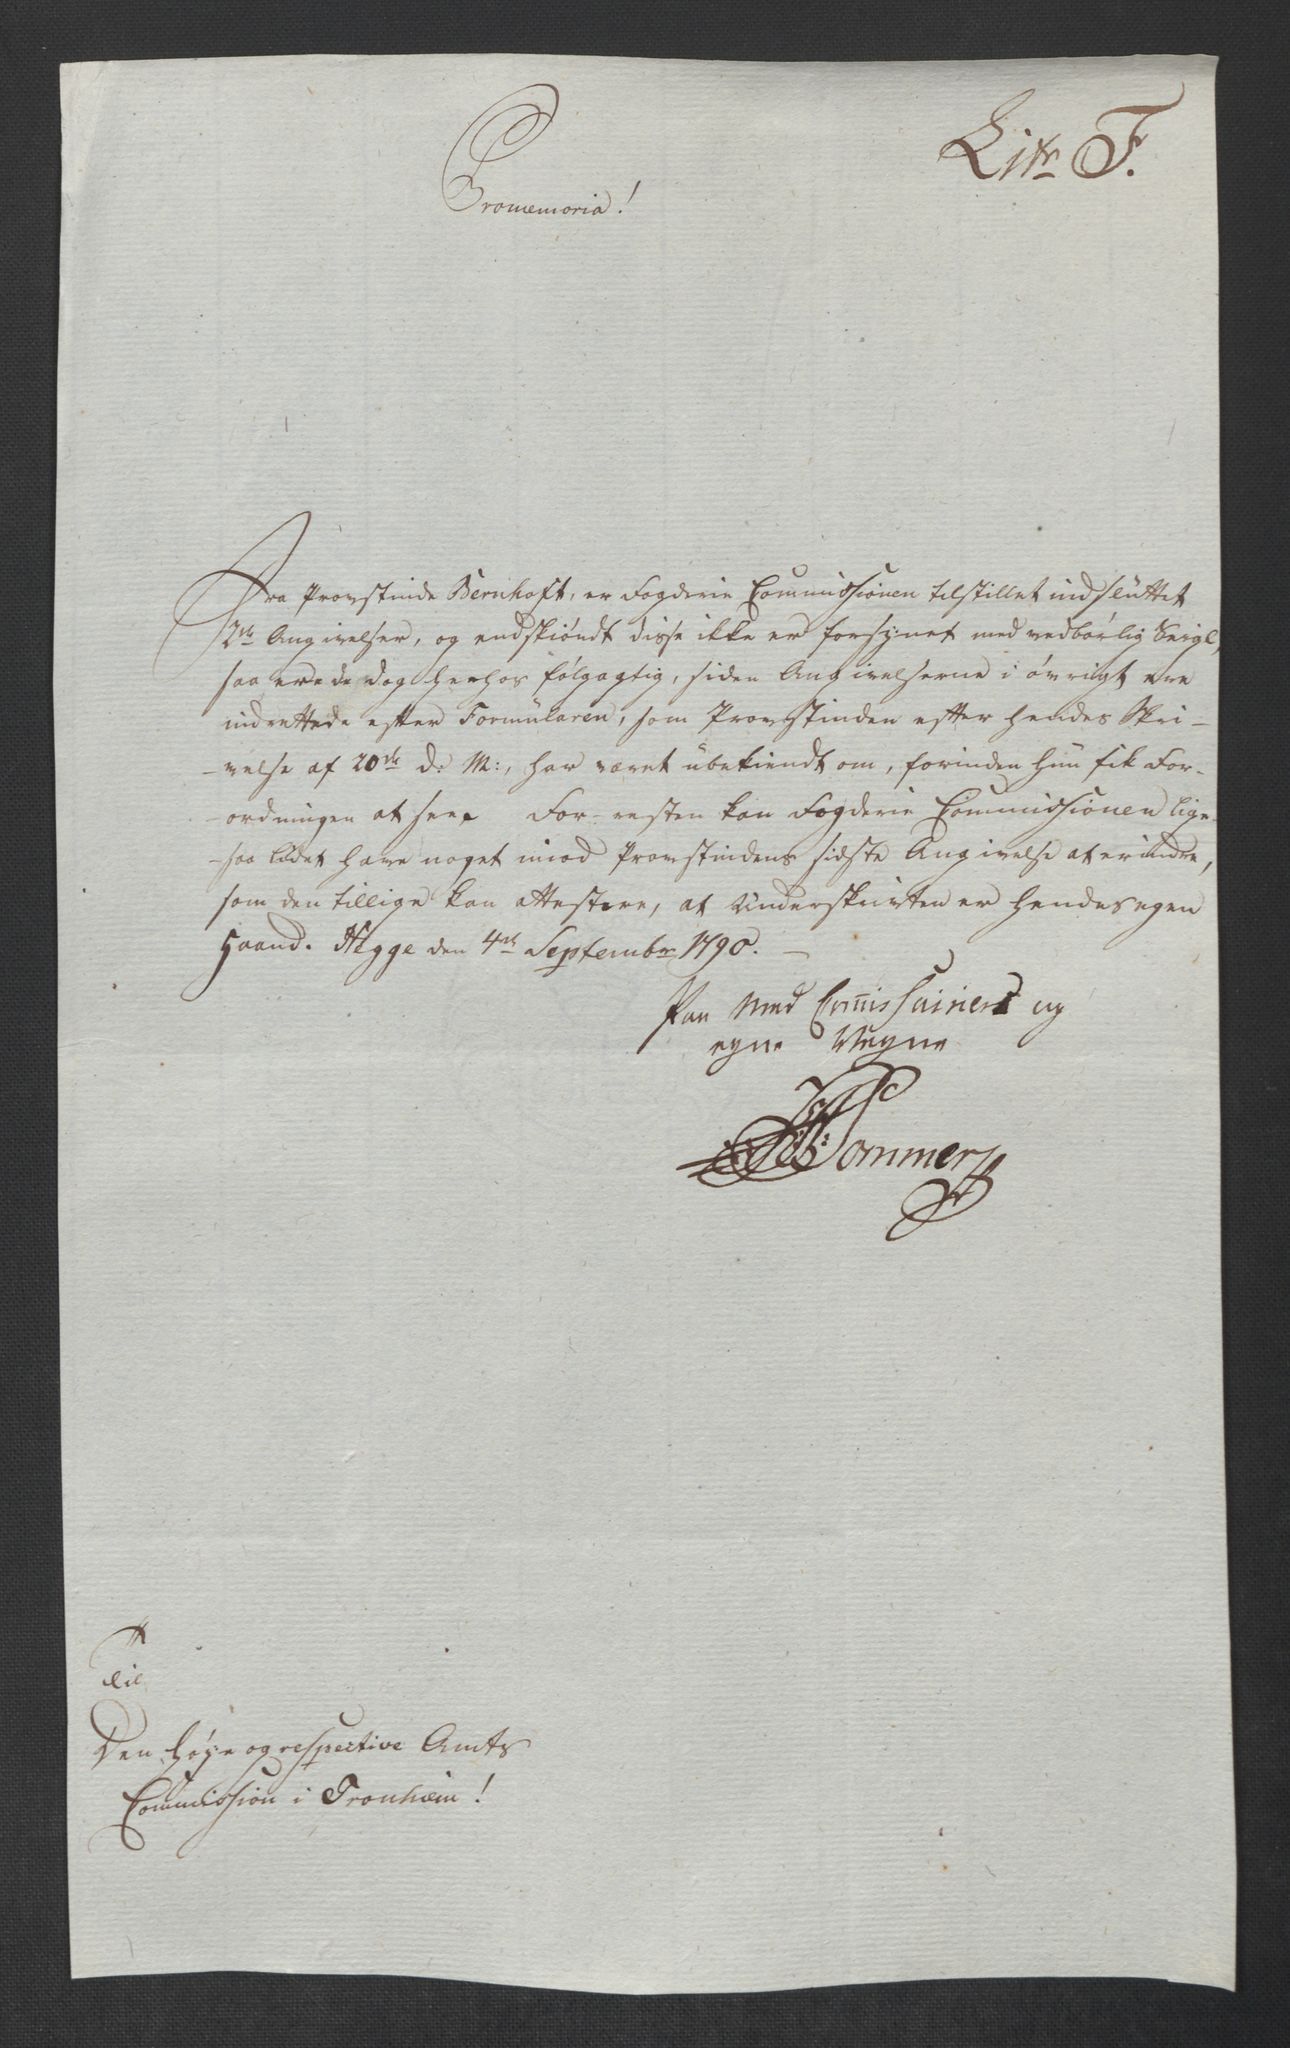 Litr F.
Promemoria!
Fra Provstinde Bernhoft, er Fogderie Commissionen tilstillet indsluttet
2de Angivelser, og endskiöndt disse ikke er forsynet med vedbörlig Seigl,
saa ere de dog herhos fölgagtig, siden Angivelserne i övrigt ere
indrettede efter Formularen, som Provstinden efter hendes Skri-
-velse af 20de d: M:, har været ubekiendt om, forinden hun fik For-
-ordningen at see. For-resten kan Fogderie Commissionen lige-
-saa lidet have noget imod Provstindens sidste Angivelse at erindre,
som den tillige kan attestere, at Underskrivten er hendes egen
Haand. Hegge den 4de Septembr 1790.
Paa Med Commissairiers og
egne Vegne
Sommer
Til
Den höye og respective Amts
Commission i Tronhiem!